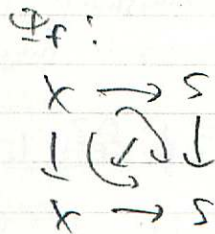 Φ_f:
X → S
↓ ↓
X → S